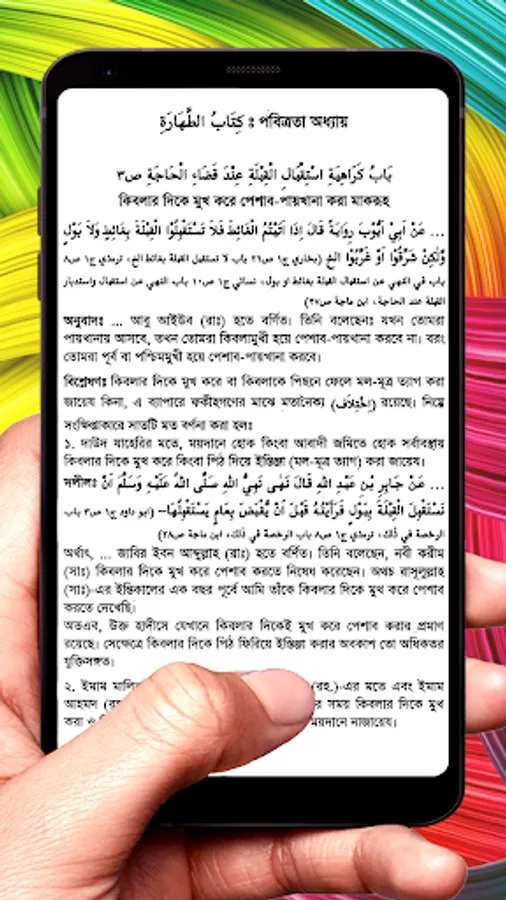 كِتَابُ الطَّهَارَةِ ঃ পবিত্রতা অধ্যায়
بَابُ كَرَاهِيَةِ اسْتِقْبَالِ الْقِبْلَةِ عِنْدَ قَضَاءِ الْحَاجَةِ ص٣
কিবলার দিকে মুখ করে পেশাব-পায়খানা করা মাকরূহ
... عَنْ اَبِيْ اَيُّوْبَ رِوَايَةً قَالَ اِذَا اَتَيْتُمُ الْغَائِطَ فَلَا تَسْتَقْبِلُوْا الْقِبْلَةَ بِغَائِطٍ وَلَا بَوْلٍ
وَلٰكِنْ شَرِّقُوْا اَوْ غَرِّبُوْا الخ (بخاري ج١ ص٢٦ باب لا تستقبل القبلة بغائط الخ، ترمذي ج١ ص٨
باب في النهي عن استقبال القبلة بغائط او بول، نسائي ج١ ص١٠ باب النهي عن استقبال واستدبار
القبلة عند الحاجة، ابن ماجة ص٢٧)
অনুবাদঃ ... আবু আইউব (রাঃ) হতে বর্ণিত। তিনি বলেছেনঃ যখন তোমরা
পায়খানায় আসবে, তখন তোমরা কিবলামুখী হয়ে পেশাব-পায়খানা করবে না। বরং
তোমরা পূর্ব বা পশ্চিমমুখী হয়ে পেশাব-পায়খানা করবে।
বিশ্লেষণঃ কিবলার দিকে মুখ করে বা কিবলাকে পিছনে ফেলে মল-মূত্র ত্যাগ করা
জায়েয কিনা, এ ব্যাপারে ফকীহগণের মাঝে মতানৈক্য (اِخْتِلَاف) রয়েছে। নিম্নে
সংক্ষিপ্তাকারে সাতটি মত বর্ণনা করা হলঃ
১. দাউদ যাহেরির মতে, ময়দানে হোক কিংবা আবাদী জমিতে হোক সর্বাবস্থায়
কিবলার দিকে মুখ করে কিংবা পিঠ দিয়ে ইস্তিঞ্জা (মল-মূত্র ত্যাগ) করা জায়েয।
দলীলঃ ... عَنْ جَابِرِ بْنِ عَبْدِ اللهِ قَالَ نَهٰى نَبِيُّ اللهِ صَلَّى اللهُ عَلَيْهِ وَسَلَّمَ اَنْ
نَسْتَقْبِلَ الْقِبْلَةَ بِبَوْلٍ فَرَاَيْتُهُ قَبْلَ اَنْ يُّقْبَضَ بِعَامٍ يَسْتَقْبِلُهَا– (ابو داود ج١ ص٣ باب
الرخصة في ذلك، ترمذي ج١ ص٨ باب الرخصة في ذلك، ابن ماجة ص٢٨)
অর্থাৎ, ... জাবির ইবন আব্দুল্লাহ (রাঃ) হতে বর্ণিত। তিনি বলেছেন, নবী করীম
(সাঃ) কিবলার দিকে মুখ করে পেশাব করতে নিষেধ করেছেন। অথচ রাসূলুল্লাহ
(সাঃ)-এর ইন্তিকালের এক বছর পূর্বে আমি তাঁকে কিবলার দিকে মুখ করে পেশাব
করতে দেখেছি।
অতএব, উক্ত হাদীসে যেখানে কিবলার দিকেই মুখ করে পেশাব করার প্রমাণ
রয়েছে। সেক্ষেত্রে কিবলার দিকে পিঠ ফিরিয়ে ইস্তিঞ্জা করার অবকাশ তো অধিকতর
যুক্তিসঙ্গত।
২. ইমাম (রহ.)-এর মতে এবং ইমাম
আহমদ সময় কিবলার দিকে মুখ
করা ময়দানে নাজায়েয।